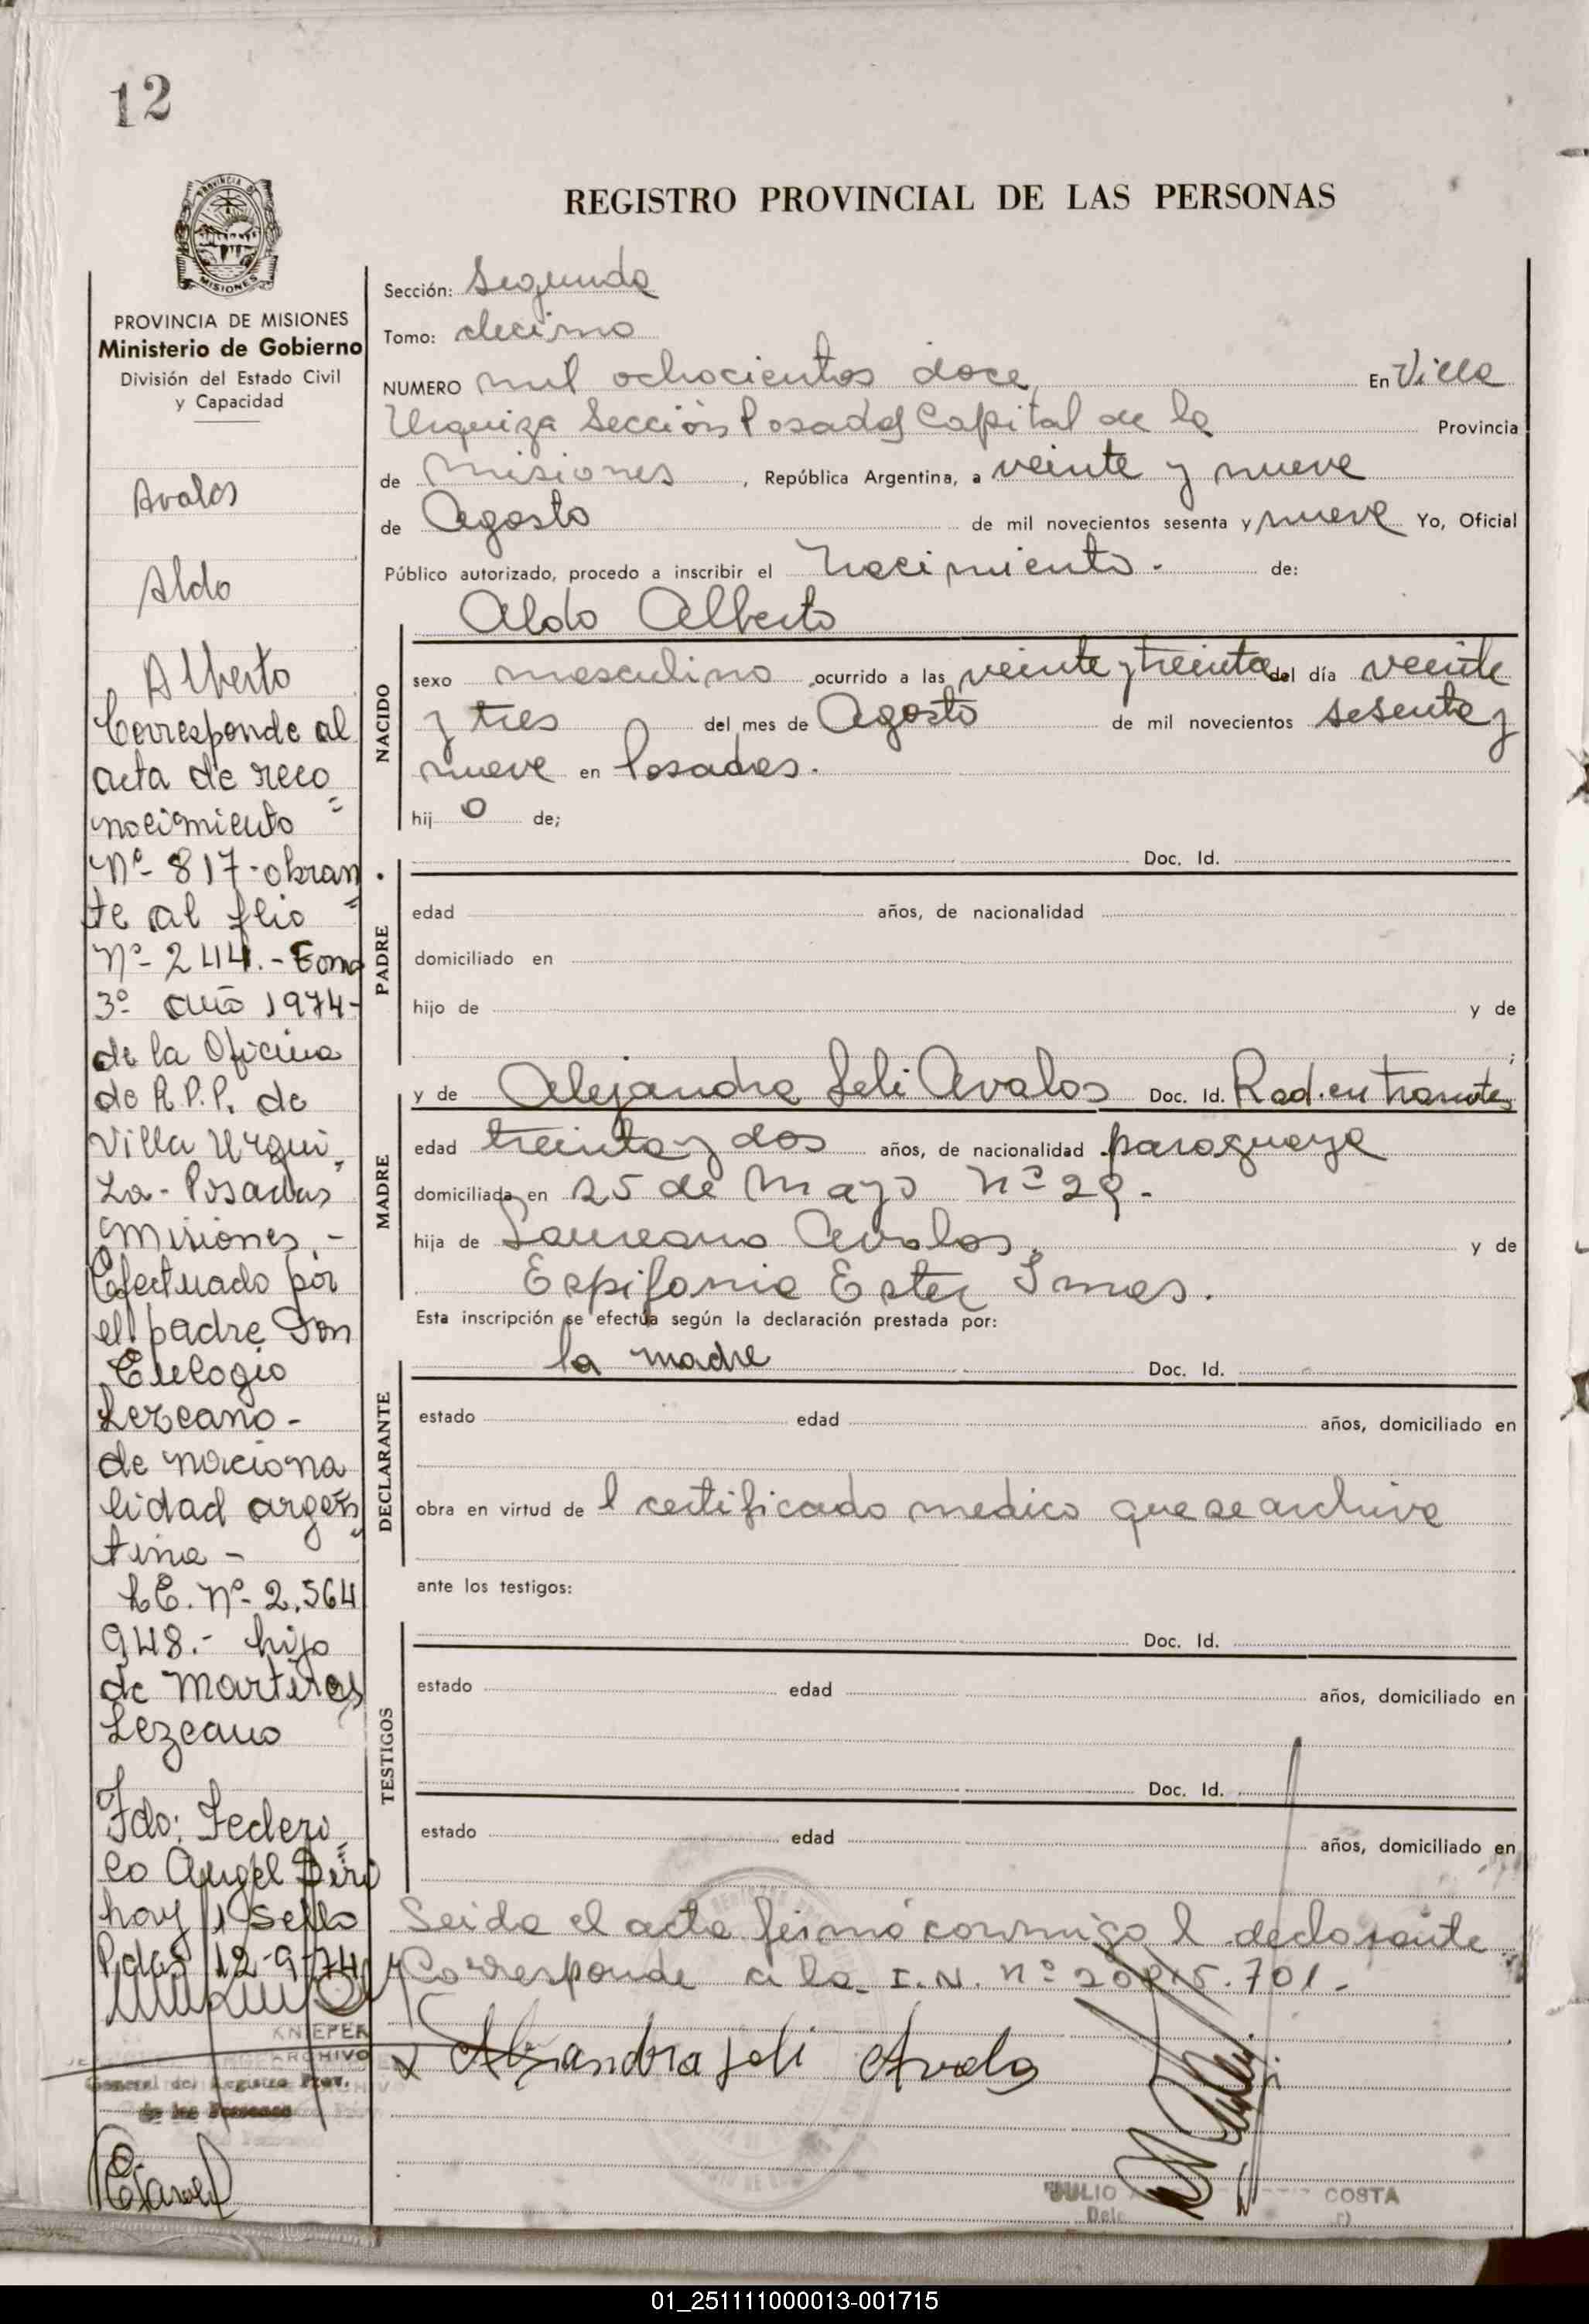 12
REGISTRO PROVINCIAL DE LAS PERSONAS
MISIONES
PROVINCIA DE MISIONES
Ministerio de Gobierno
División del Estado Civil
y Capacidad
Avalos
Aldo
Alberto
Corresponde al
acta de reco
nocimiento
Nº 817-obran
te al flio
Nº 244.- Tomo
3º año 1974-
de la Oficina
de R.P.P. de
Villa Urqui
za - Posadas
Misiones.-
Efectuado por
el padre Don
Eulogio
Lezcano-
de naciona
lidad argen
tina -
LE. Nº 2.564
948.- hijo
de Martires
Lezcano
Fdo: Federi
co Angel
hay 1 Sello
Pdas 12-9-74
KNIEPER
ARCHIVO
General del Registro Prov.
de las Personas
Sección: Segunda
Tomo: decimo
NUMERO mil ochocientos doce, En Villa
Urquiza Sección Posadas Capital de la Provincia
de Misiones, República Argentina, a veinte y nueve
de Agosto de mil novecientos sesenta y nueve Yo, Oficial
Público autorizado, procedo a inscribir el nacimiento.- de:
Aldo Alberto
NACIDO
sexo masculino ocurrido a las veinte y treinta del día veinte
y tres del mes de Agosto de mil novecientos sesenta y
nueve en Posadas.
hij o de;
PADRE
Doc. Id.
edad años, de nacionalidad
domiciliado en
hijo de y de
;
MADRE
y de Alejandra Seli Avalos Doc. Id. Rad. en tramites
edad treinta y dos años, de nacionalidad paraguaya
domiciliada en 25 de Mayo Nº 29.-
hija de Laureano Avalos, y de
Epifania Ester
Esta inscripción se efectúa según la declaración prestada por:
DECLARANTE
la madre Doc. Id.
estado edad años, domiciliado en
obra en virtud de l certificado medico que se archiva
ante los testigos:
TESTIGOS
Doc. Id.
estado edad años, domiciliado en
Doc. Id.
estado edad años, domiciliado en
Leida el acta firmó conmigo l declarante
Corresponde a la I.N. nº 701.-
Alejandra Seli Avalos
JULIO COSTA
01_251111000013-001715